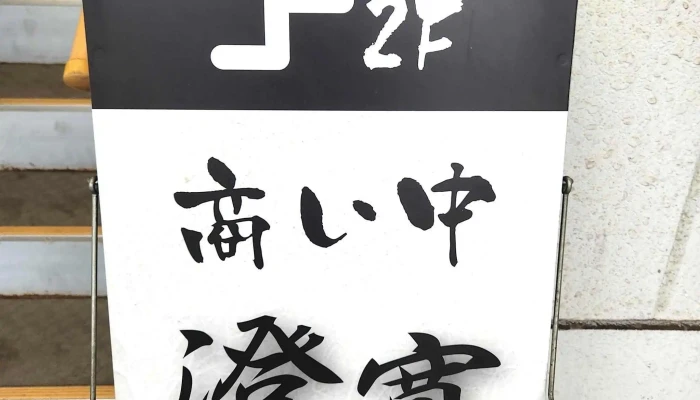 2F
商い中
澄